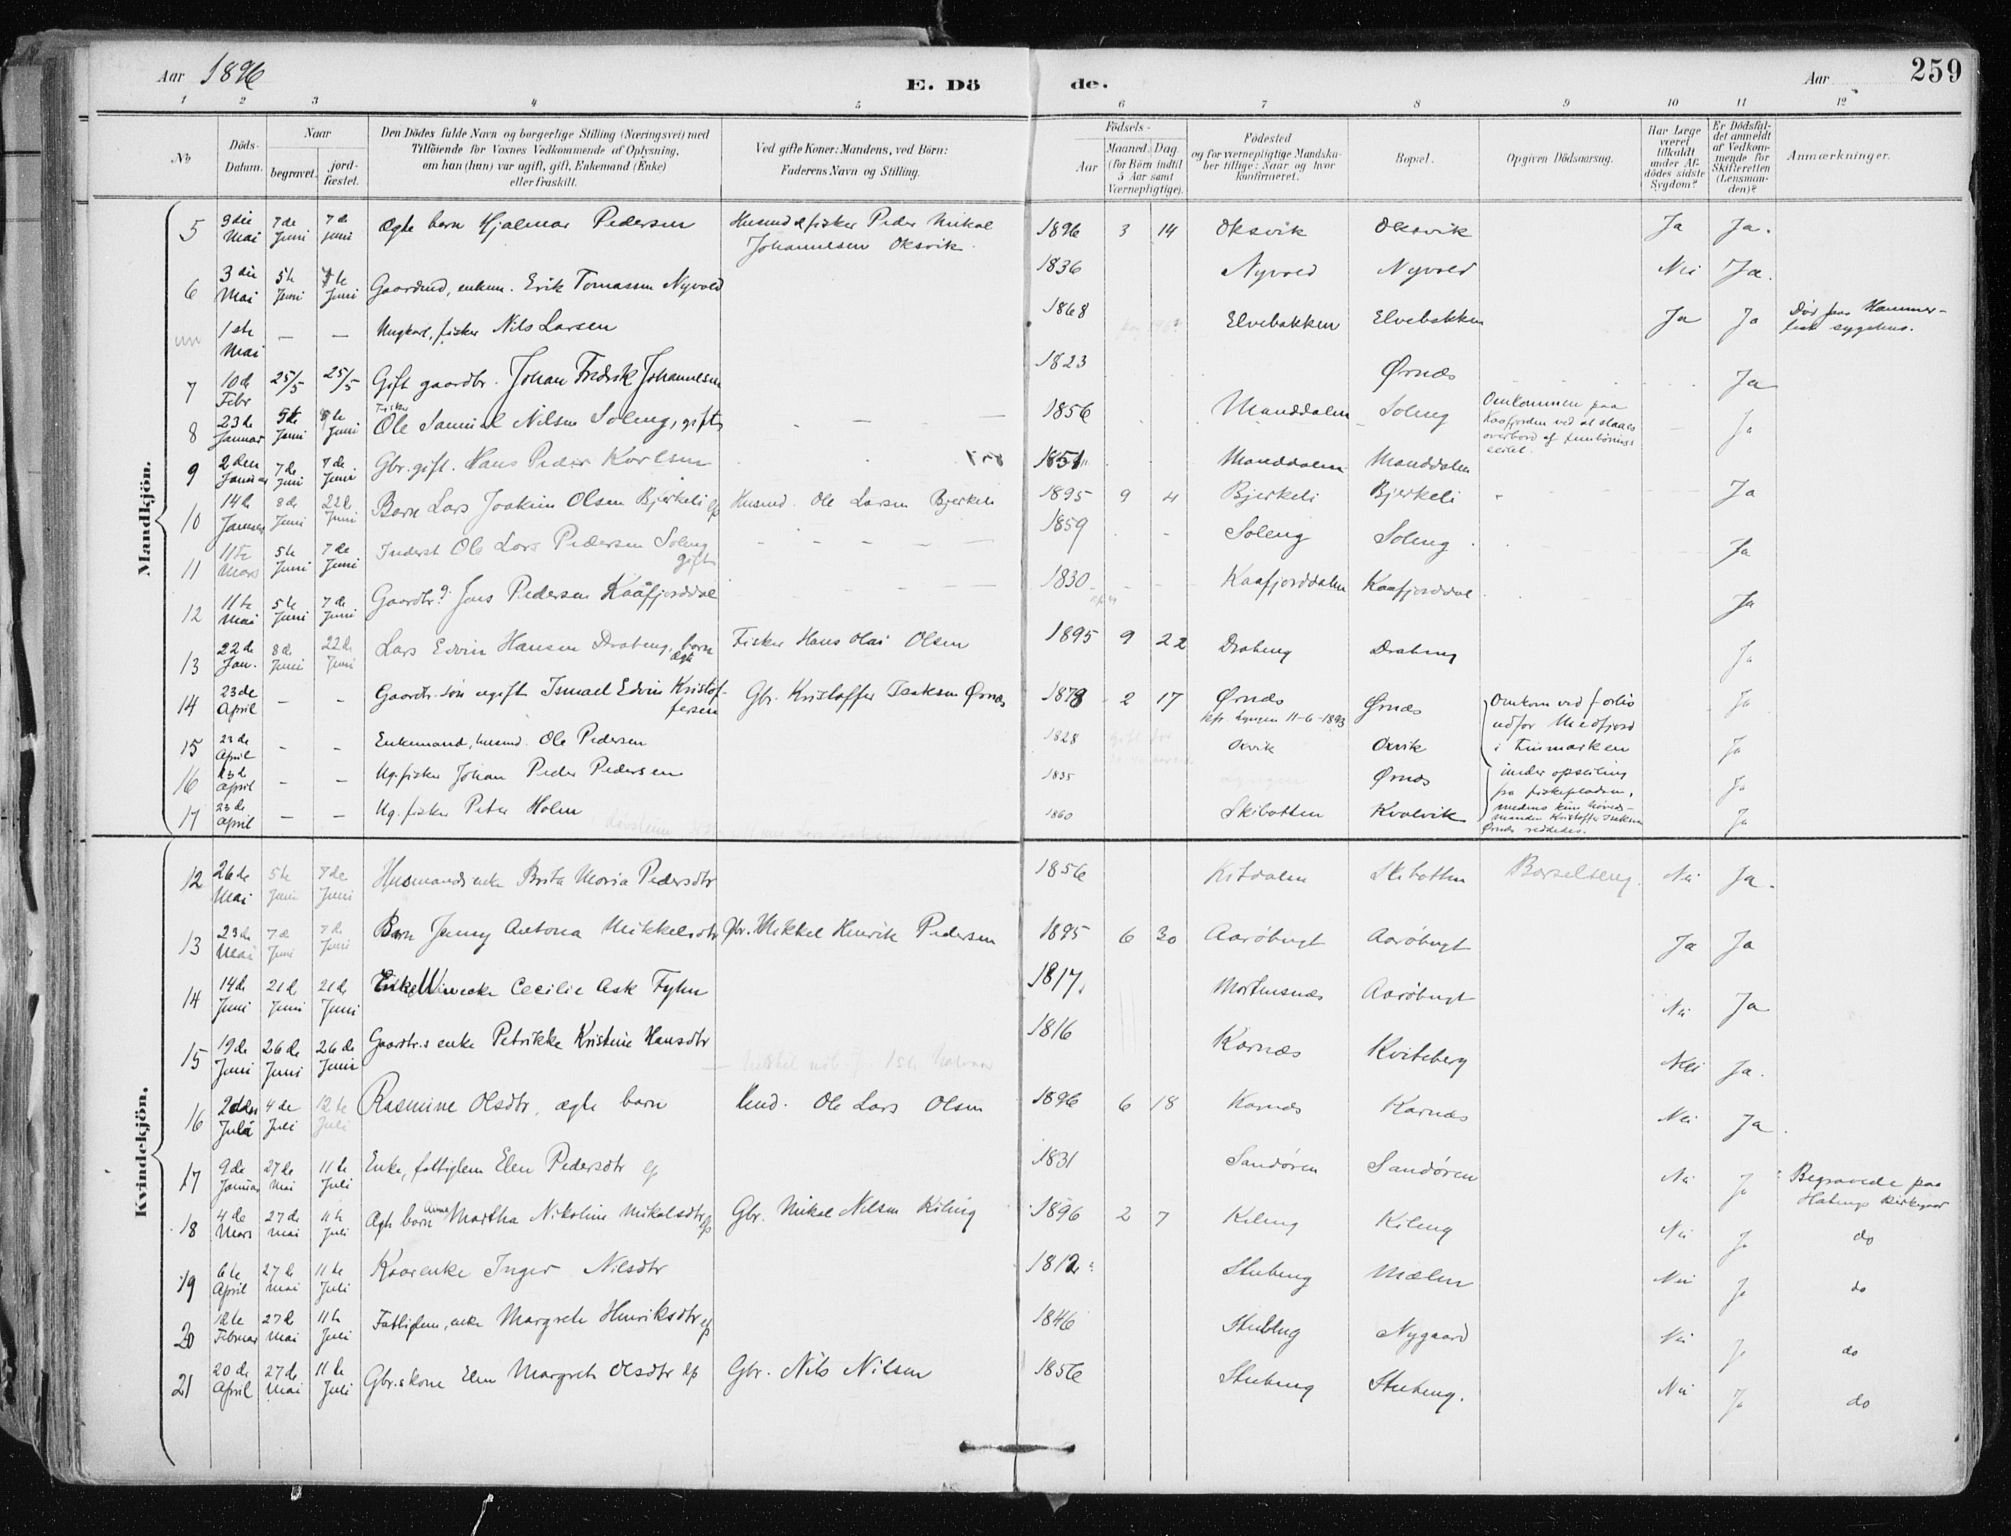 Aar 1896 E. Dö de. Aar 259
1 2 3 4 5 6 7 8 9 10 11 12
No
Döds-Datum.
Naar
begravet.
jord-fæstet.
Den Dödes fulde Navn og borgerlige Stilling (Næringsvei) med
Tilföiende for Voxnes Vedkommende af Oplysning,
om han (hun) var ugift, gift, Enkemand (Enke)
eller fraskilt.
Ved gifte Koner: Mandens, ved Börn:
Faderens Navn og Stilling.
Födsels-
Aar
Maaned. Dag.
(for Börn indtil
5 Aar samt
Værnepligtige).
Födested
og for værnepligtige Mandska-
ber tillige: Naar og hvor
konfirmeret.
Bopæl.
Opgiven Dödsaarsag.
Har Læge
været
tilkaldt
under Af-
dödes sidste
Sygdom?
Er Dödsfal-
det anmeldt
af Vedkom-
mende for
Skifteretten
(Lensman-
den)?
Anmærkninger.
Mandkjön.
5 9die Mai 7de Juni 7de Juni Ægte barn Hjalmar Pedersen Husmd & fisker Peder Mikal Johannesen Oksvik 1896 3 14 Oksvik Oksvik Ja Ja.
6 3die Mai 5te Juni 7de Juni Gaardmd, enkem. Erik Tomassen Nyvold 1836 Nyvold Nyvold Nei Ja.
1ste Mai — — Ungkarl, fisker Nils Larsen 1868 Elvebakken Elvebakken Ja Ja Død paa Hammer-fest sygehus.
7 10de Febr 25/5 25/5 Gift gaardbr. Johan Fredrik Johannesen 1823 Ørnæs Ja
8 23de Januar 5te Juni 7de Juni Fisker Ole Samuel Nilsen Soleng, gift 1856 Manddalen Soleng Omkommen paa Kaafjorden ved at slaaes overbord af seilet. Ja
9 2den Januar 7de Juni 7de Juni Gbr. gift. Hans Peder Karlsen 1851 Manddalen Manddalen
10 14de Januar 8de Juni 22de Juni Barn Lars Joakim Olsen Bjerkeli Husmd. Ole Larsen Bjerkeli 1895 9 4 Bjerkeli Bjerkeli Ja
11 11te Mars 5te Juni 7de Juni Inderst Ole Lars Pedersen Soleng gift 1859 Soleng Soleng Ja
12 11te Mai 5te Juni 7de Juni Gaardbr. Jens Pedersen Kaafjorddal 1830 Kaafjorddalen Kaafjorddal Ja
13 22de Jan. 8de Juni 22de Juni Lars Edvin Hansen Drabeng, barn ægte Fisker Hans Olai Olsen 1895 9 22 Drabeng Drabeng Ja
14 23de April — — Gaardbr. søn ugift Ismael Edvin Kristof-fersen Gbr. Kristoffer Isaksen Ørnæs 1878 2 17 Ørnæs kfr. Lyngen 11-6-1893 Ørnæs Omkom ved forlis udfor Medfjord i Finmarken Ja
15 23de April — — Enkemand, husmd. Ole Pedersen 1828 Oxvik Oxvik Ja
16 23de April — — Ug. fisker Johan Peder Pedersen 1835 Ørnæs under opseiling fra fiskepladsen, Ja
17 23de April — — Ug. fisker Peter Holm 1860 Skibotten Kvalvik medens kun høveds-manden Kristoffer Isaksen Ørnæs reddedes. Ja
Kvindekjön.
12 26de Mai 5te Juni 7de Juni Husmandsenke Brita Maria Pedersdtr 1856 Kitdalen Skibotten Barselseng. Nei Ja.
13 23de Mai 7de Juni 7de Juni Barn Jenny Antona Mikkelsdtr Gbr. Mikkel Henrik Pedersen 1895 6 30 Aarøbugt Aarøbugt Ja Ja
14 14de Juni 21de Juni 21de Juni Enke Cecilie Ask Fyhn 1817. Mortensnæs Aarøbugt Nei Ja
15 19de Juni 26de Juni 26de Juni Gaardbr.s enke Petrikke Kristine Hansdtr 1816 Karnæs Kviteberg Nei Ja.
16 2den Juli 4de Juli 12te Juli Rasmine Olsdtr, ægte barn Husmd. Ole Lars Olsen 1896 6 18 Karnæs Karnæs Nei Ja.
17 9de Januar 27de Mai 11te Juli Enke, fattiglem Elen Pedersdtr 1831 Sandøren Sandøren Nei Ja Begravede paa Hatengs kirkegaard
18 4de Mars 27de Mai 11te Juli Ægte barn Anne Martha Nikoline Mikalsdtr Gbr. Mikal Nilsen Kileng 1896 2 7 Kileng Kileng Nei Ja do
19 6te April 27de Mai 11te Juli Kaarenke Inger Nilsdtr 1812 Stubeng Mælen Nei Ja do
20 12te Februar 27de Mai 11te Juli Fattiglem, enke Margrete Henriksdtr 1846 Stubeng Nygaard Nei Ja do
21 20de April 27de Mai 11te Juli Gbr.s kone Elen Margrete Olsdtr Gbr. Nils Nilsen 1856 Stubeng Stubeng. Nei Ja do